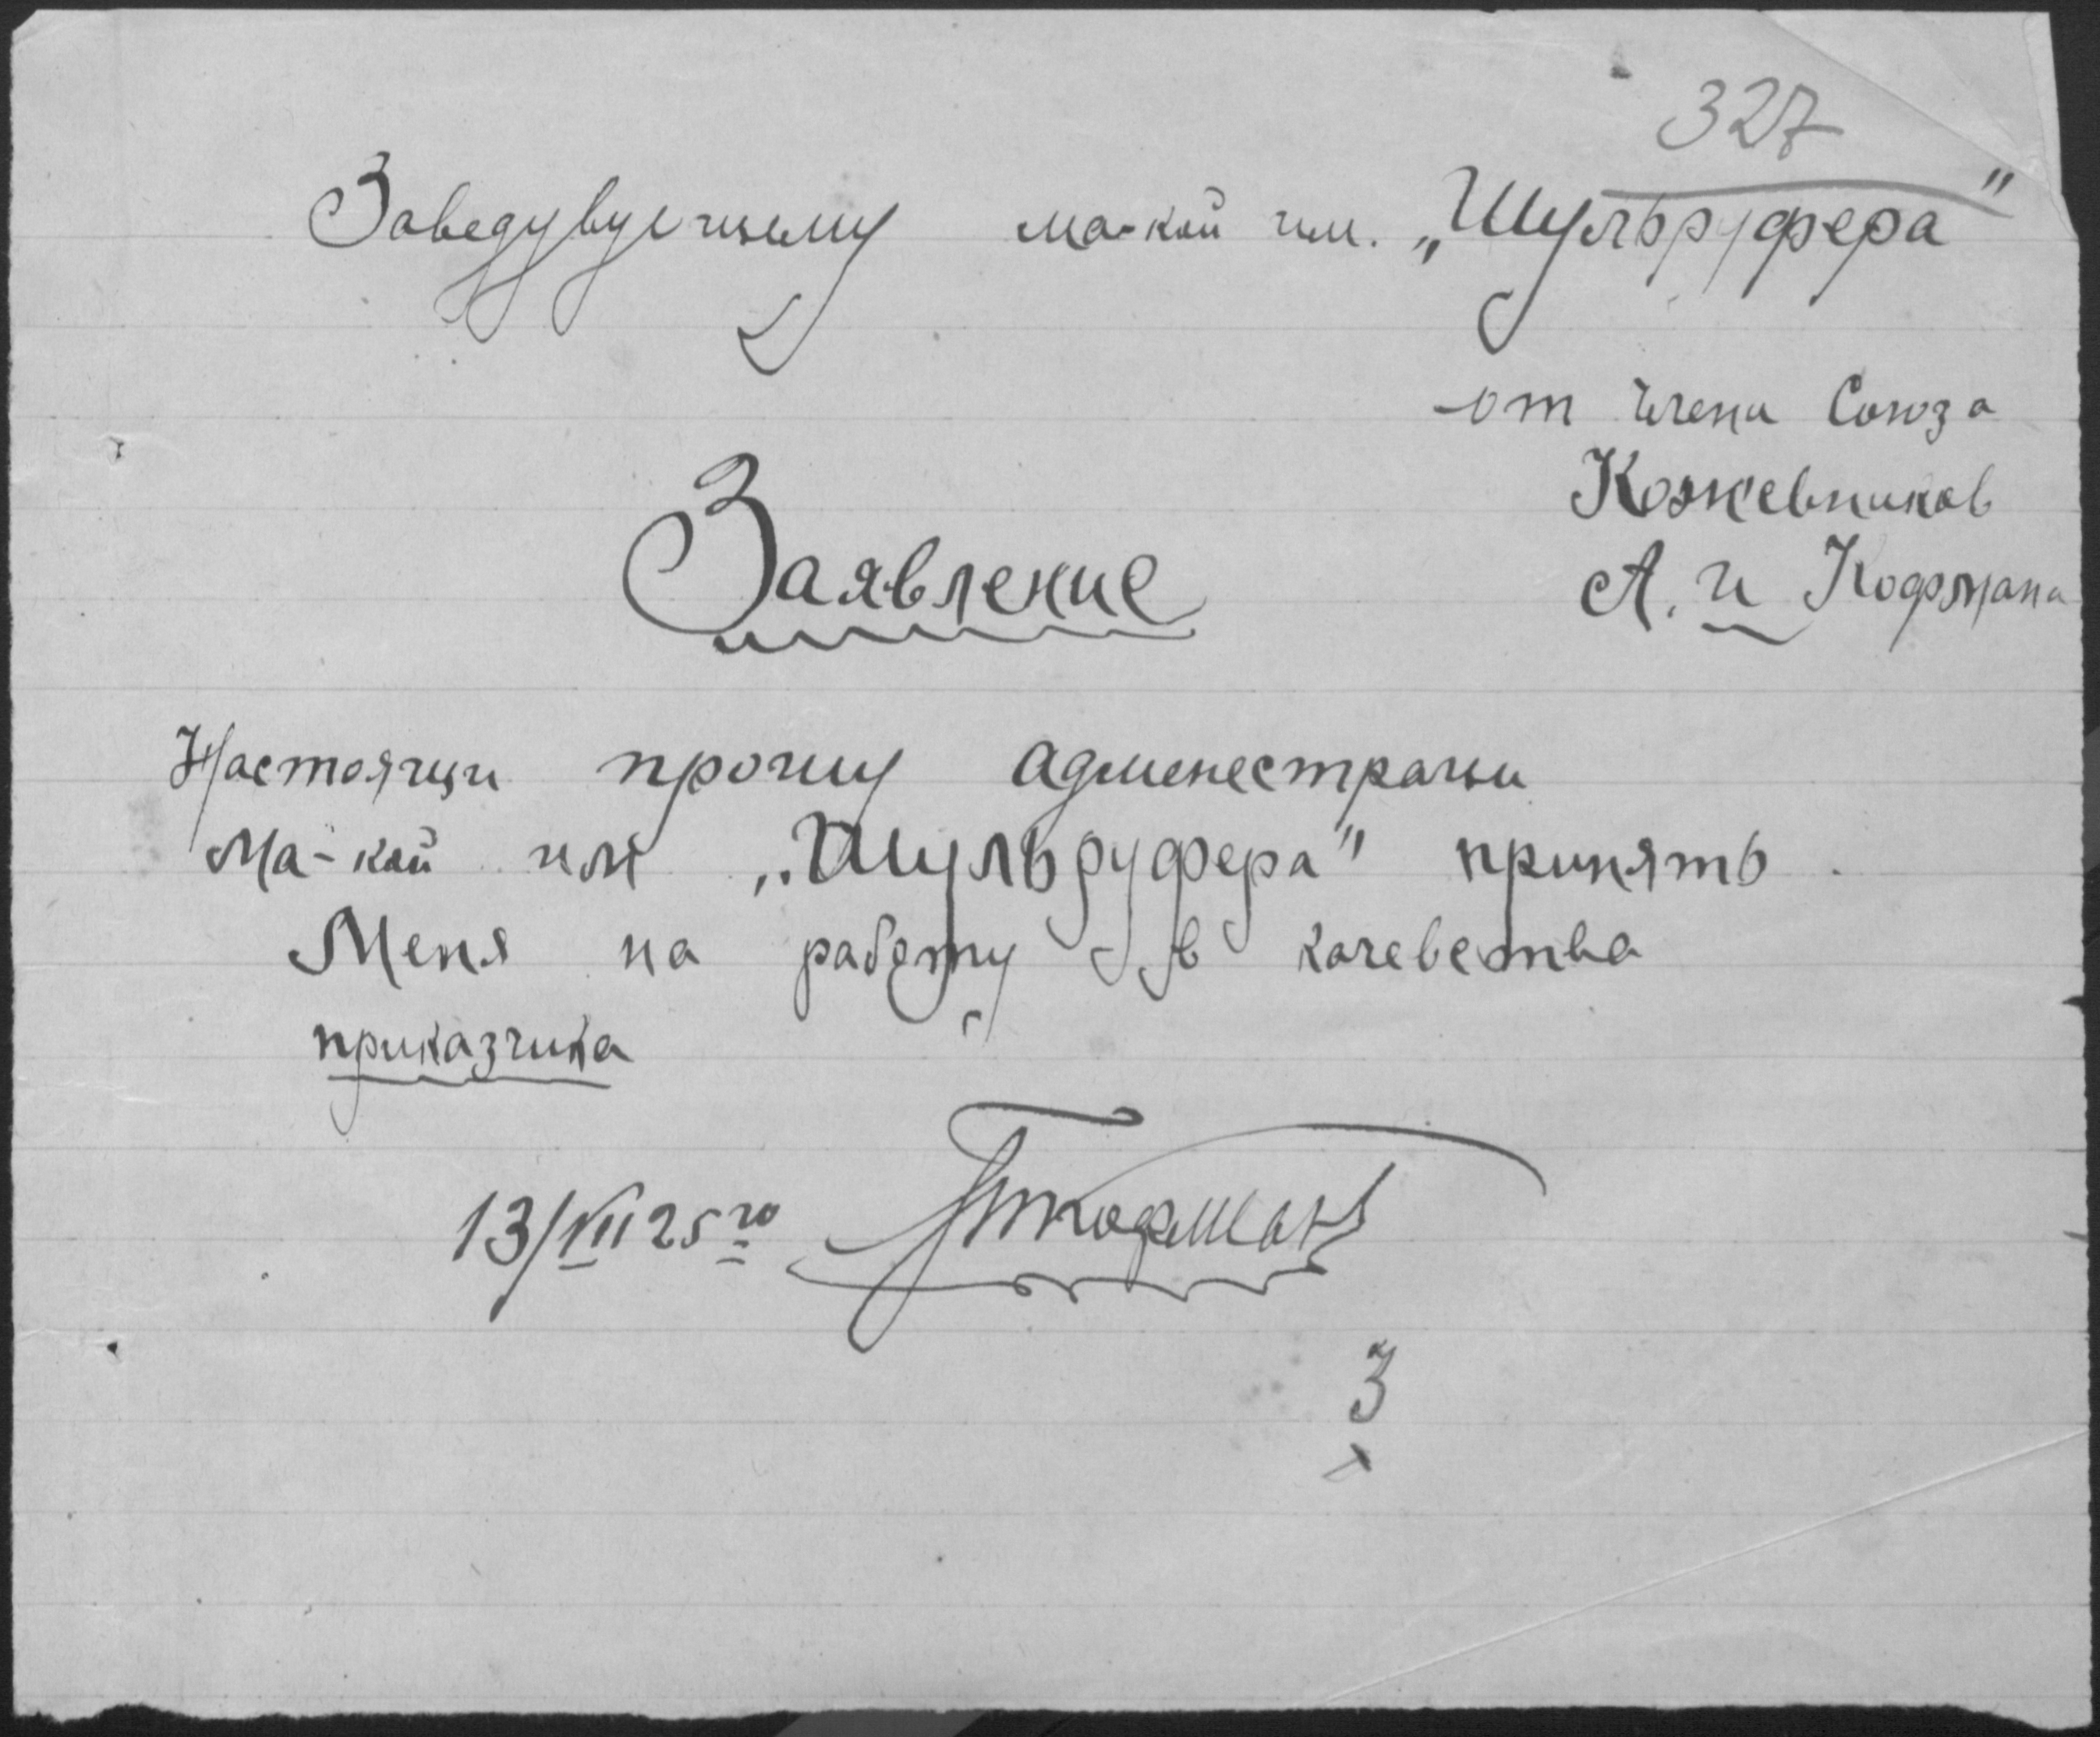 327
Заведувущему ма-кой им. „Шульруфера"
от члена Союза
Кожевников
Заявление
А. И Кофмана
Настоящи прошу админестраци
Ма-кой им „Шульруфера" принять
Меня на работу в качевства
приказчика
13/VIII 25 го Кофман
3